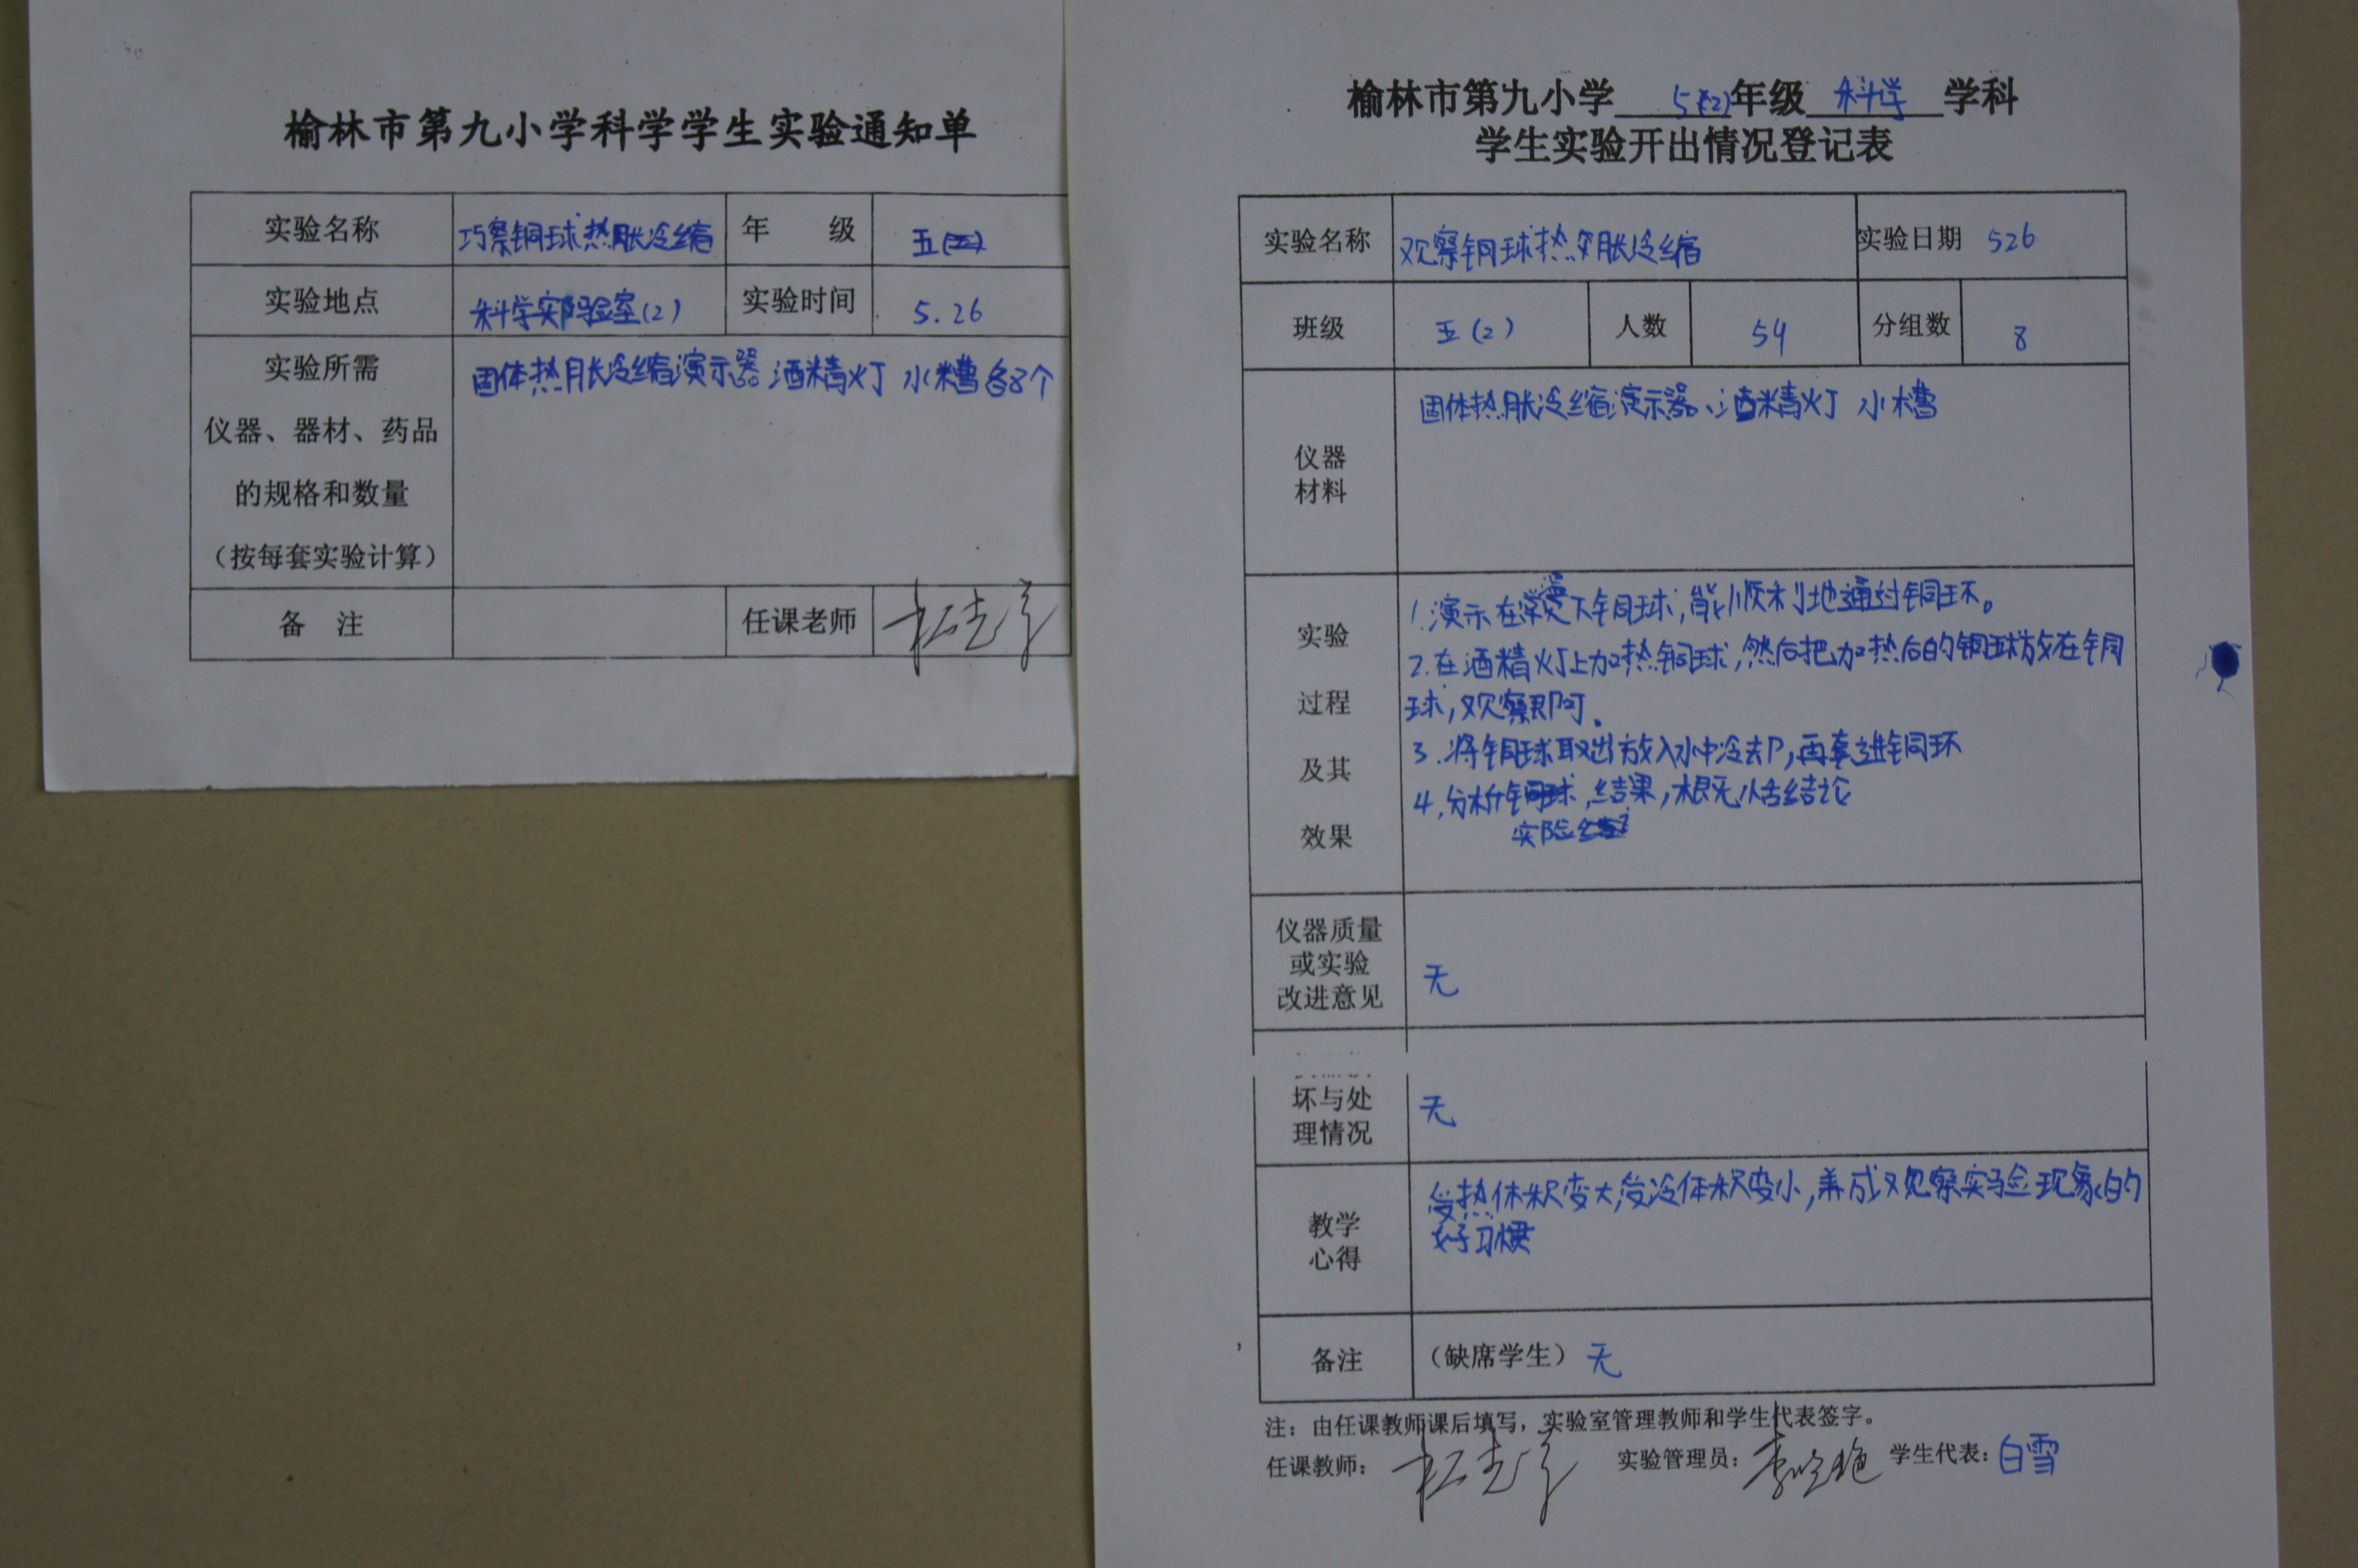 榆林市第九小学科学学生实验通知单
实验名称 巧察铜球热胀冷缩 年 级 五(2)
实验地点 科学实验室(2) 实验时间 5.26
实验所需
仪器、器材、药品
的规格和数量
（按每套实验计算）
固体热胀冷缩演示器 酒精灯 水槽各8个
备 注 任课老师
榆林市第九小学 5(2) 年级 科学 学科
学生实验开出情况登记表
实验名称 观察铜球热胀冷缩 实验日期 526
班级 五(2) 人数 54 分组数 8
仪器
材料
固体热胀冷缩演示器、酒精灯 水槽
实验
过程
及其
效果
1.演示在常温下铜球,能顺利地通过铜环。
2.在酒精灯上加热铜球,然后把加热后的铜球放在铜
球,观察即可。
3.将铜球取出放入水中冷却,再套进铜环
4.分析铜球,结果,概括结论
实验
仪器质量
或实验
改进意见
无
坏与处
理情况
无
教学
心得
受热体积变大,受冷体积变小,养成观察实验现象的
好习惯
备注 （缺席学生） 无
注：由任课教师课后填写，实验室管理教师和学生代表签字。
任课教师： 实验管理员： 学生代表：白雪